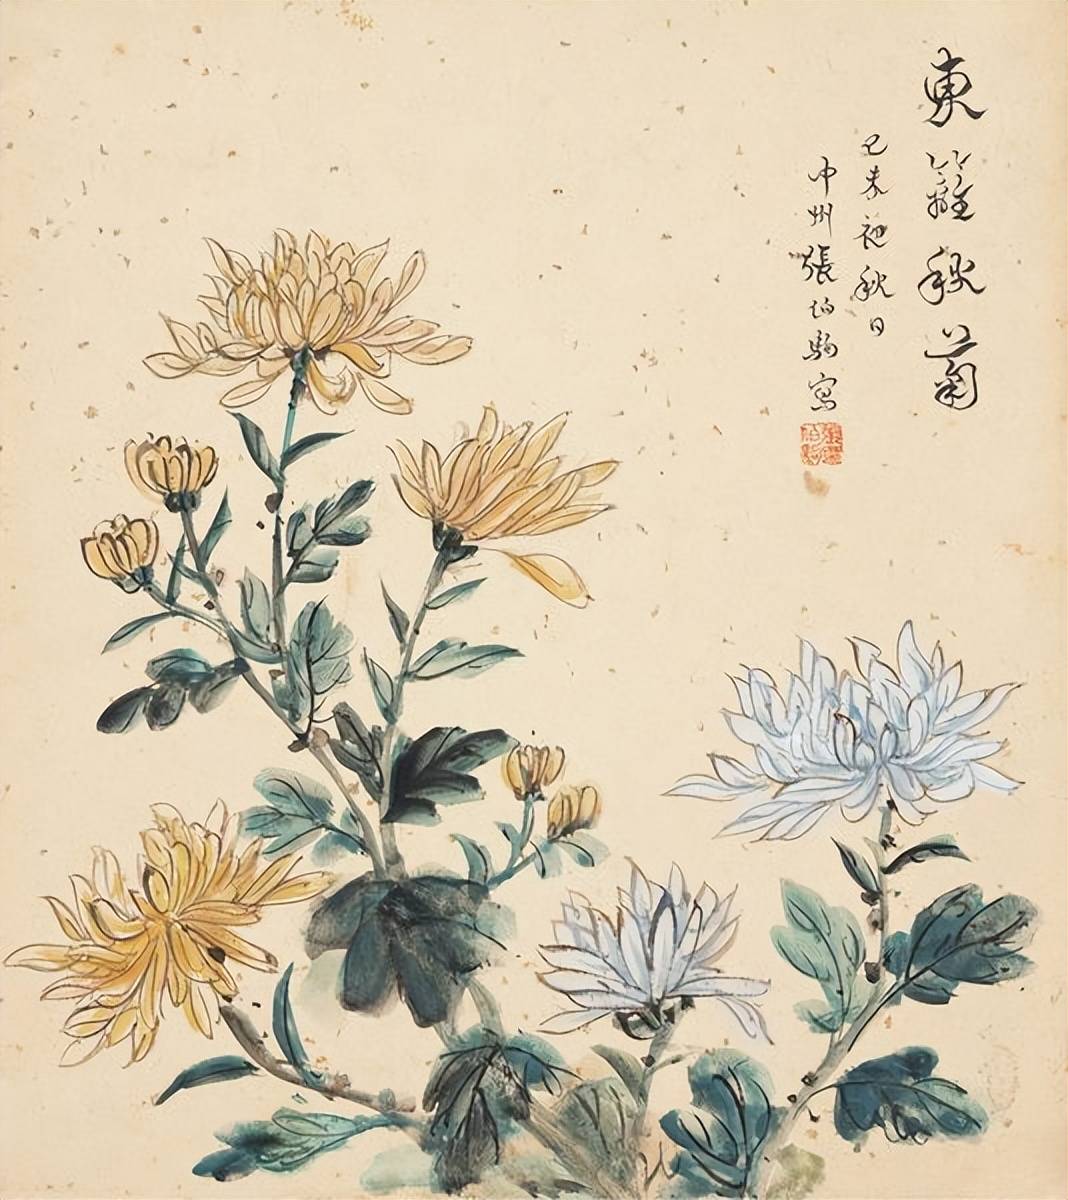 東籬秋菊
己未初秋日
中州張伯駒寫
張伯駒